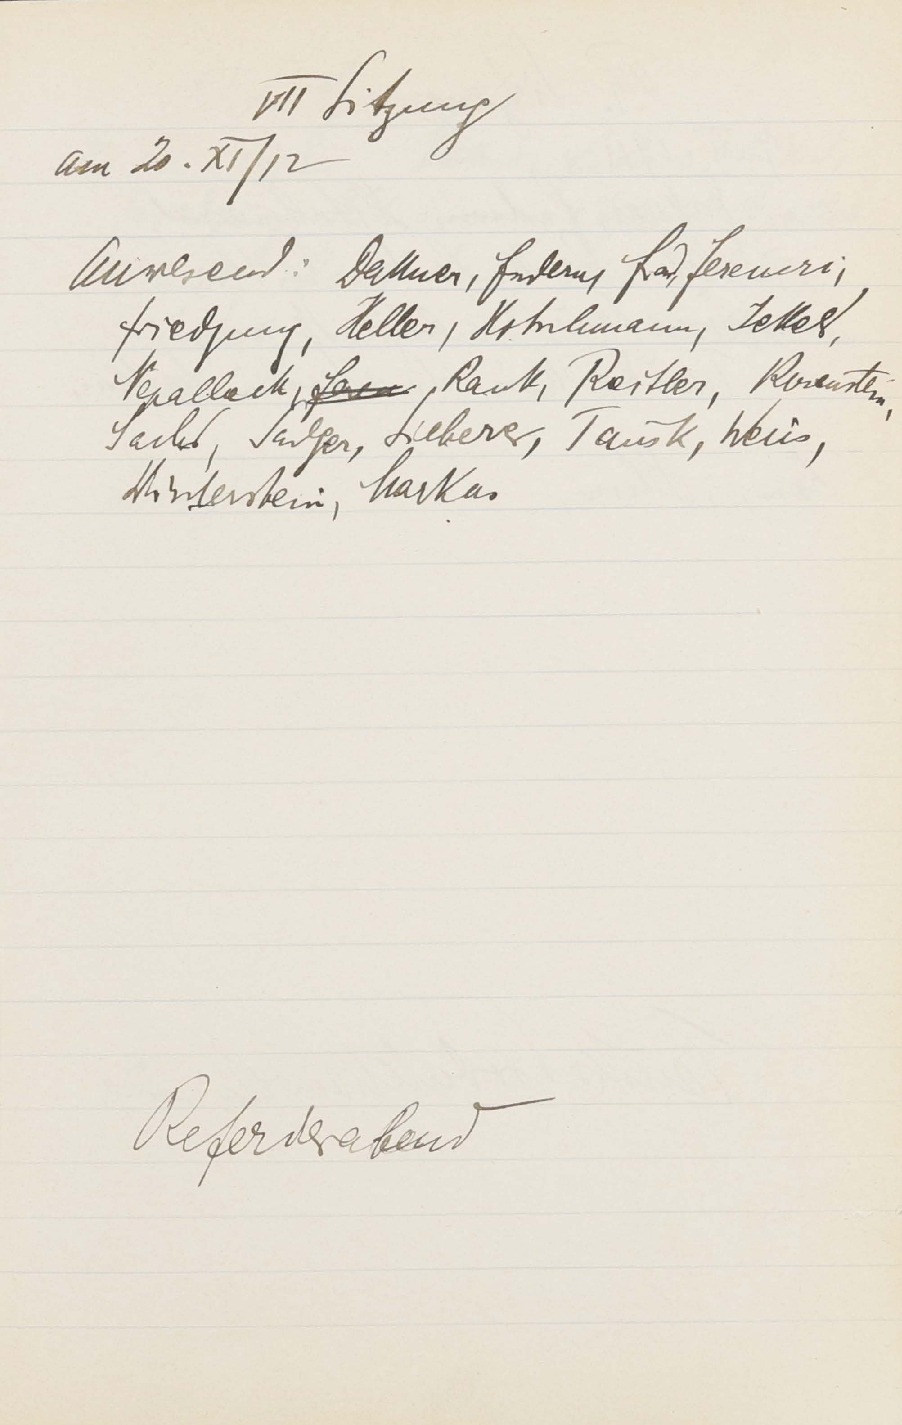 VII Sitzung
am 20. XI/12
Anwesend: Dattner, Federn, Frd, Ferenczi,
Friedjung, Heller, Hitschmann, Jekels,
Nepalleck, Rank, Reitler, Rosenstein,
Sachs, Sadger, Silberer, Tausk, Weiss,
Winterstein, Markus
Referierabend